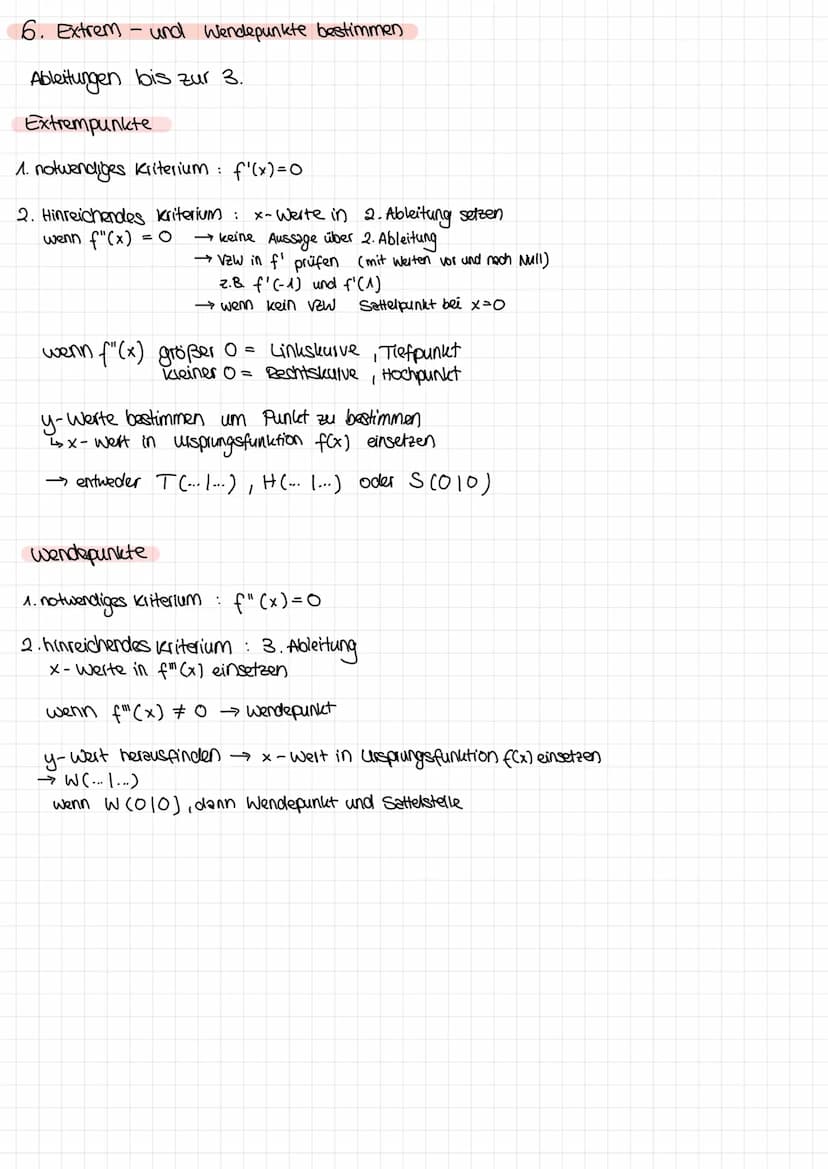 6. Extrem - und Wendepunkte bestimmen
Ableitungen bis zur 3.
Extrempunkte
1. notwendiges Kriterium : f'(x)=0
2. Hinreichendes Kriterium : x-Werte in 2. Ableitung setzen
wenn f"(x) = 0 → keine Aussage über 2. Ableitung
→ VZW in f' prüfen (mit Werten vor und nach Null)
z.B f'(-1) und f'(1)
→ wenn kein VZW Sattelpunkt bei x=0
wenn f"(x) größer 0 = Linkskurve , Tiefpunkt
kleiner 0 = Rechtskurve , Hochpunkt
y-Werte bestimmen um Punkt zu bestimmen
↳ x-Wert in Ursprungsfunktion f(x) einsetzen
→ entweder T(...|...) , H(... |...) oder S(0|0)
Wendepunkte
1. notwendiges Kriterium : f"(x)=0
2. hinreichendes Kriterium : 3. Ableitung
x-Werte in f'''(x) einsetzen
wenn f'''(x) ≠ 0 → Wendepunkt
y-Wert herausfinden → x-Wert in Ursprungsfunktion f(x) einsetzen
→ W(...|...)
wenn W(0|0), dann Wendepunkt und Sattelstelle